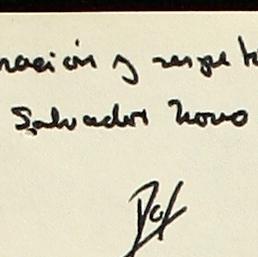 ración y respeto
Salvador Novo